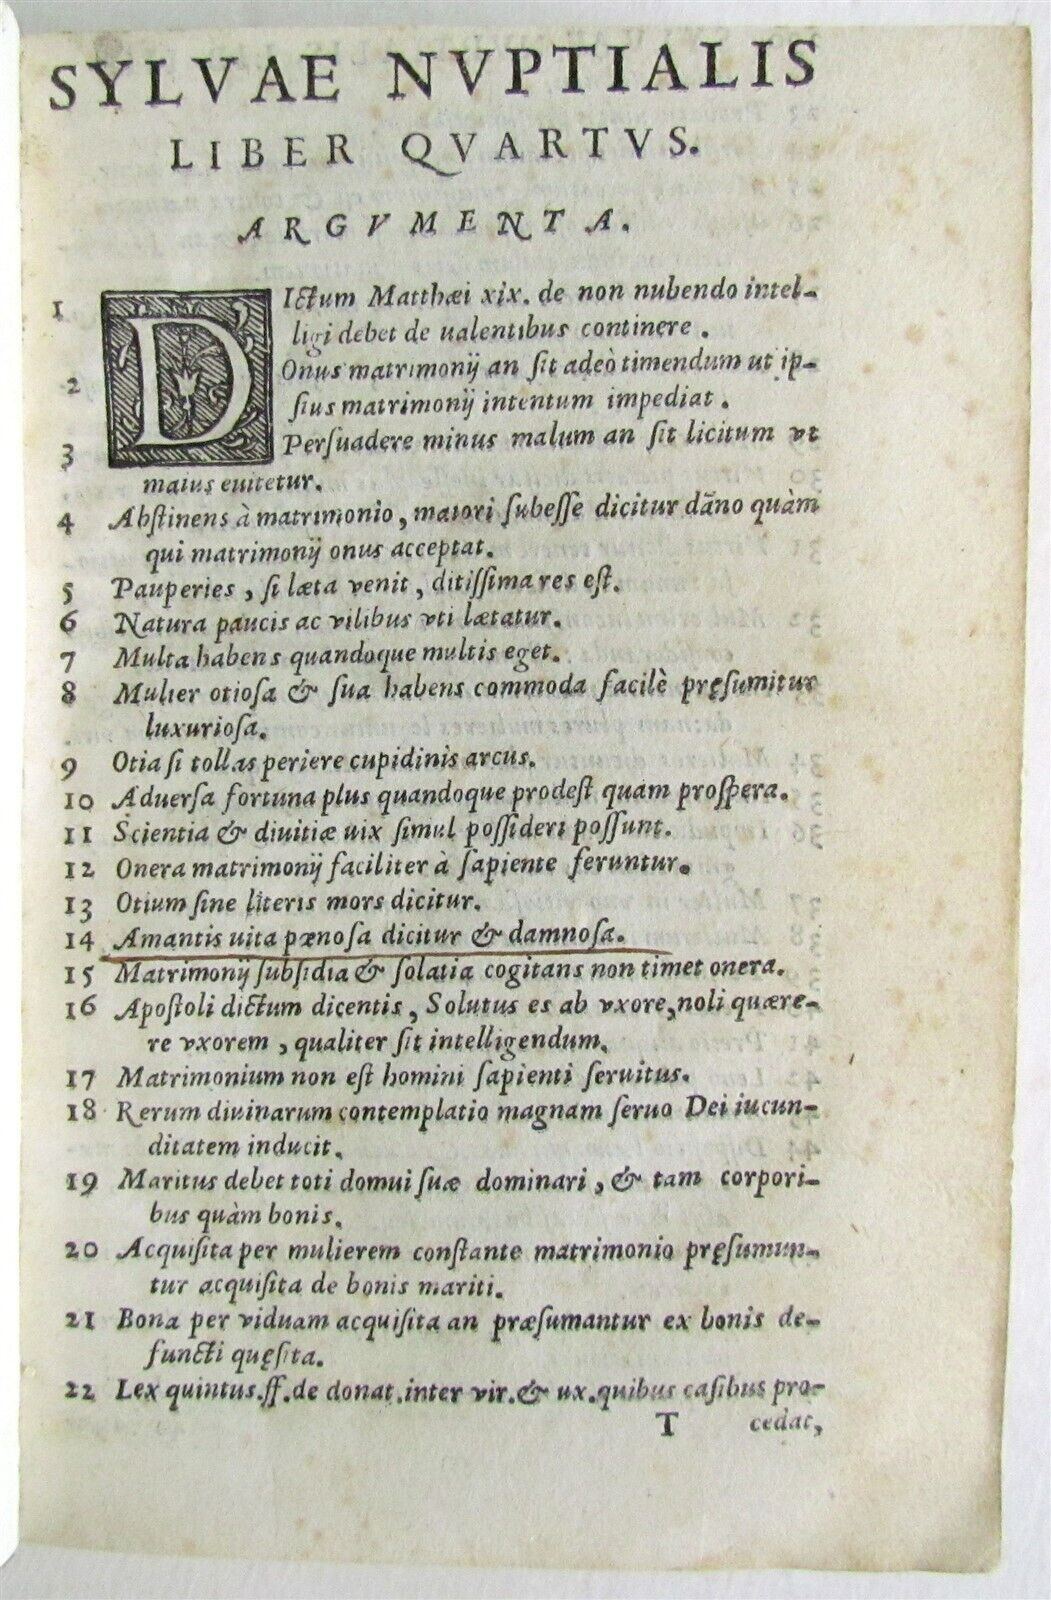 SYLVAE NVPTIALIS
LIBER QVARTVS.
ARGVMENTA.
1 DIctum Matthæi xix. de non nubendo intel-
ligi debet de ualentibus continere.
2 Onus matrimonij an sit adeò timendum ut ip-
sius matrimonij intentum impediat.
3 Persuadere minus malum an sit licitum vt
maius euitetur.
4 Abstinens à matrimonio, maiori subesse dicitur dãno quàm
qui matrimonij onus acceptat.
5 Pauperies, si læta venit, ditissima res est.
6 Natura paucis ac vilibus vti lætatur.
7 Multa habens quandoque multis eget.
8 Mulier otiosa & sua habens commoda facilè pręsumitur
luxuriosa.
9 Otia si tollas periere cupidinis arcus.
10 Aduersa fortuna plus quandoque prodest quam prospera.
11 Scientia & diuitiæ uix simul possideri possunt.
12 Onera matrimonij faciliter à sapiente feruntur.
13 Otium sine literis mors dicitur.
14 Amantis uita pœnosa dicitur & damnosa.
15 Matrimonij subsidia & solatia cogitans non timet onera.
16 Apostoli dictum dicentis, Solutus es ab vxore, noli quære-
re vxorem, qualiter sit intelligendum.
17 Matrimonium non est homini sapienti seruitus.
18 Rerum diuinarum contemplatio magnam seruo Dei iucun-
ditatem inducit.
19 Maritus debet toti domui suæ dominari, & tam corpori-
bus quàm bonis.
20 Acquisita per mulierem constante matrimonio pręsumun-
tur acquisita de bonis mariti.
21 Bona per viduam acquisita an præsumantur ex bonis de-
functi quęsita.
22 Lex quintus.ff.de donat.inter vir.& ux.quibus casibus pro-
T cedat,